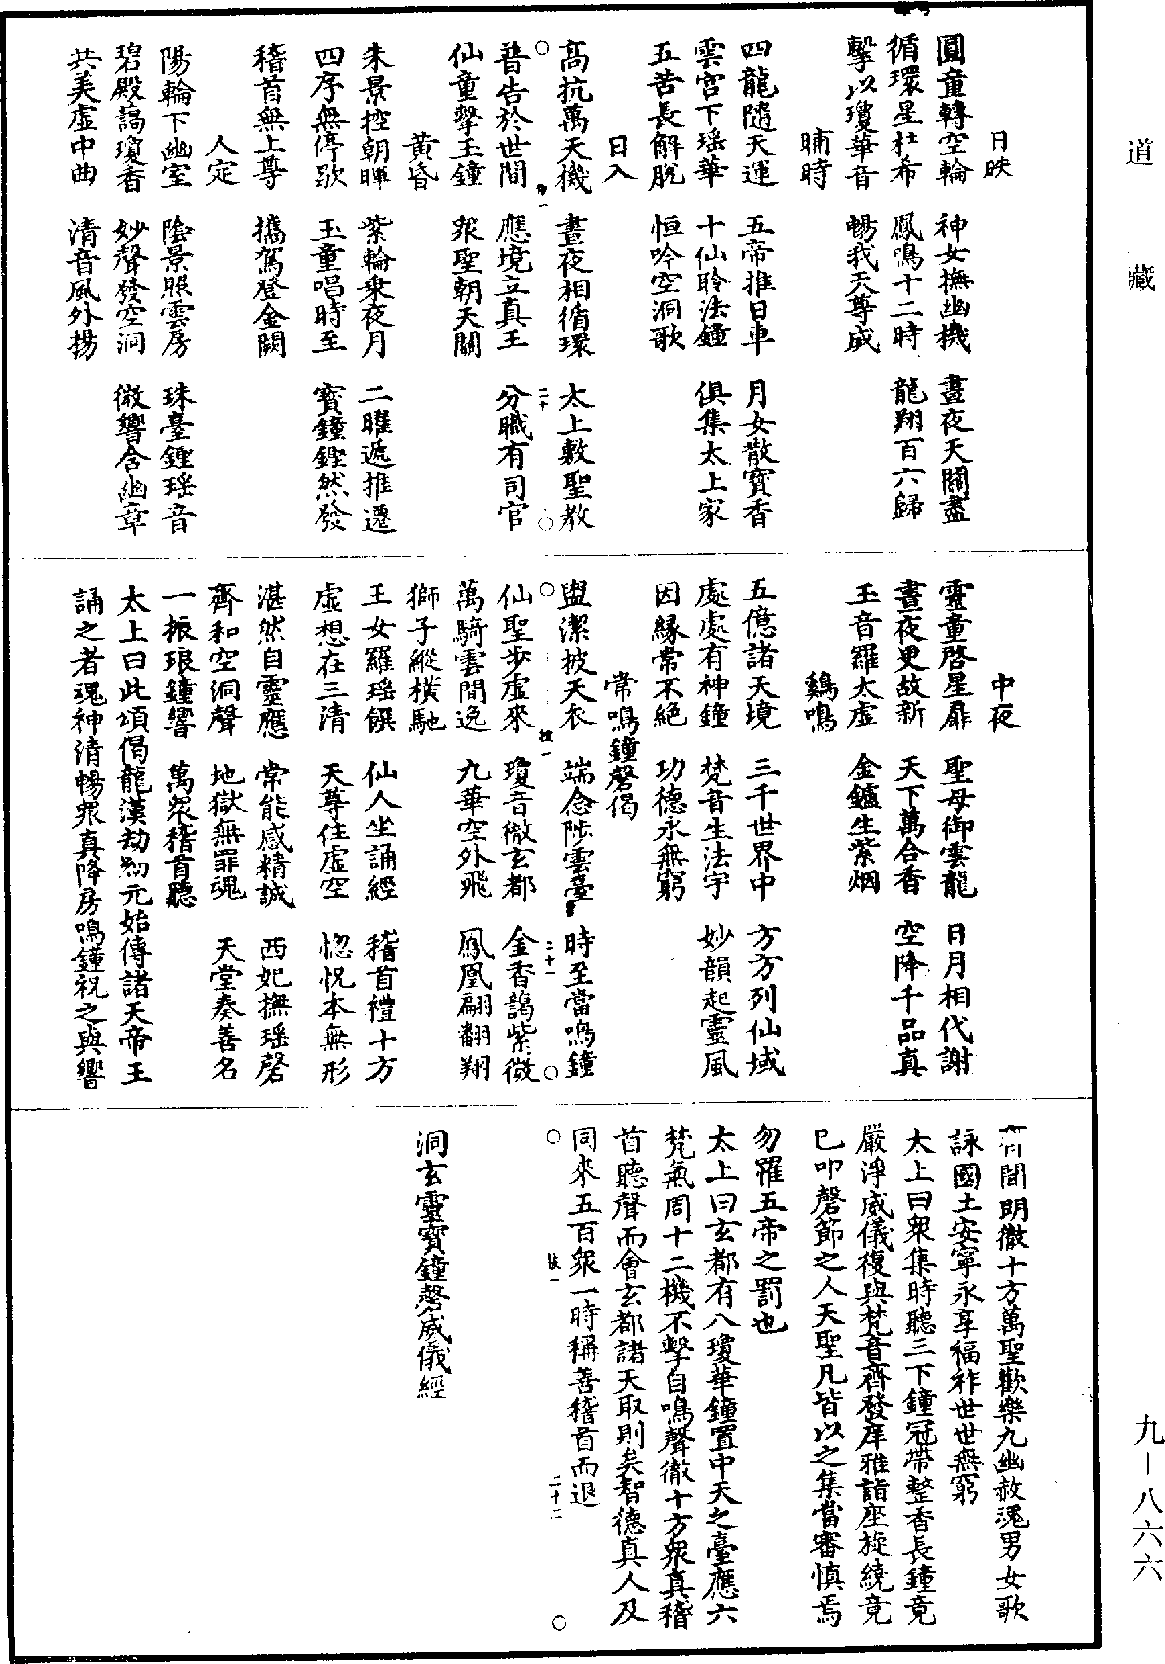 道藏
日昳
圓童轉空輪　神女撫幽機　晝夜天關盡
循環星杜希　鳳鳴十二時　龍翔百六歸
擊以瓊華音　暢我天尊威
晡時
四龍隨天運　五帝推日車　月女散寶香
雲宮下瑤華　十仙聆法鐘　俱集太上家
五苦長解脫　恒吟空洞歌
日入
高抗萬天機　晝夜相循環　太上敷聖教
普告於世間　應境立真王　分職有司官
仙童擊玉鐘　眾聖朝天關
黃昏
朱景控朝暉　紫輪乘夜月　二曜遞推遷
四序無停歇　玉童唱時至　寶鐘鏗然發
稽首無上尊　攜駕登金闕
人定
陽輪下幽室　陰景照雲房　珠臺鏗瑤音
碧殿謁瓊香　妙聲發空洞　微響含幽章
共美虛中曲　清音風外揚
中夜
靈童啓星扉　聖母御雲龍　日月相代謝
晝夜更故新　天下萬合香　空降千品真
玉音羅太虛　金鑪生紫烟
鷄鳴
五億諸天境　三千世界中　方方列仙域
處處有神鐘　梵音生法宇　妙韻起靈風
因緣常不絕　功德永無窮
常鳴鐘磬偈
盥潔披天衣　端念陟雲臺　時至當鳴鐘
仙聖步虛來　瓊音徹玄都　金香謁紫微
萬騎雲間逸　九華空外飛　鳳凰翩翻翔
獅子縱橫馳
玉女羅瑤饌　仙人坐誦經　稽首禮十方
虛想在三清　天尊住虛空　惚怳本無形
湛然自靈應　常能感精誠　西妃撫瑤磬
齊和空洞聲　地獄無罪魂　天堂奏善名
一振琅鐘響　萬眾稽首聽
太上曰此頌偈龍漢劫初元始傳諸天帝王
誦之者魂神清暢眾真降房鳴鐘祝之與響
間朗徹十方萬聖歡樂九幽赦魂男女歌
詠國土安寧永享福祚世世無窮
太上曰眾集時聽三下鐘冠帶整香長鐘竟
嚴淨威儀復與梵音齊發庠雅詣座旋繞竟
已叩磬節之人天聖凡皆以之集當審慎焉
勿罹五帝之罰也
太上曰玄都有八瓊華鐘置中天之臺應六
梵氣周十二機不擊自鳴聲徹十方眾真稽
首聽聲而會玄都諸天取則矣智德真人及
同來五百眾一時稱善稽首而退
洞玄靈寶鐘磬威儀經
九－八六六